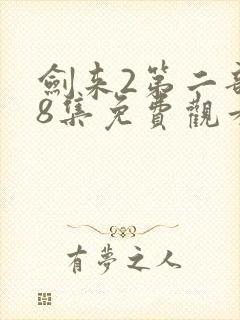 劍来2第二部
8集免費觀看
有夢之人